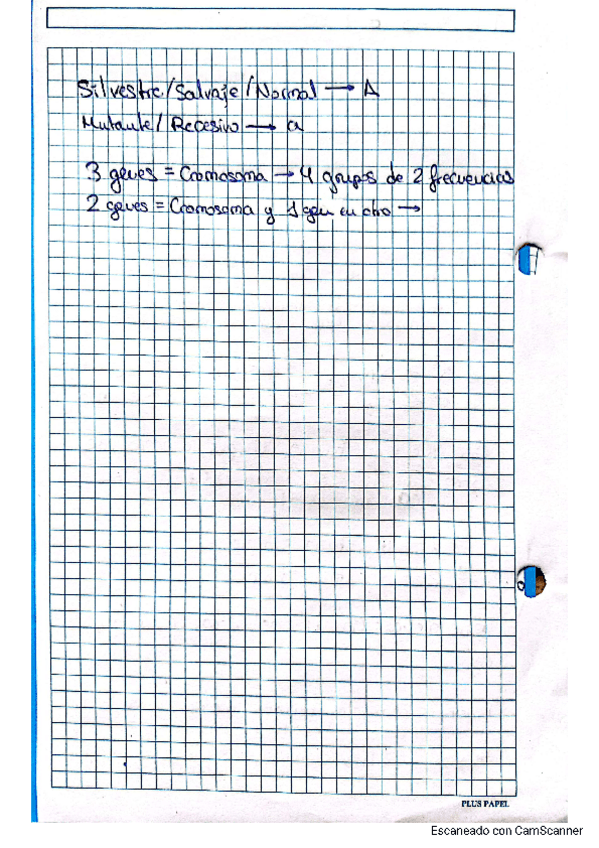 Silvestre/Salvaje/Normal → A
Mutante/Recesivo → a
3 genes = Cromosoma → 4 grupos de 2 frecuencias
2 genes = Cromosoma y 1 gen en otro →
PLUS PAPEL
Escaneado con CamScanner